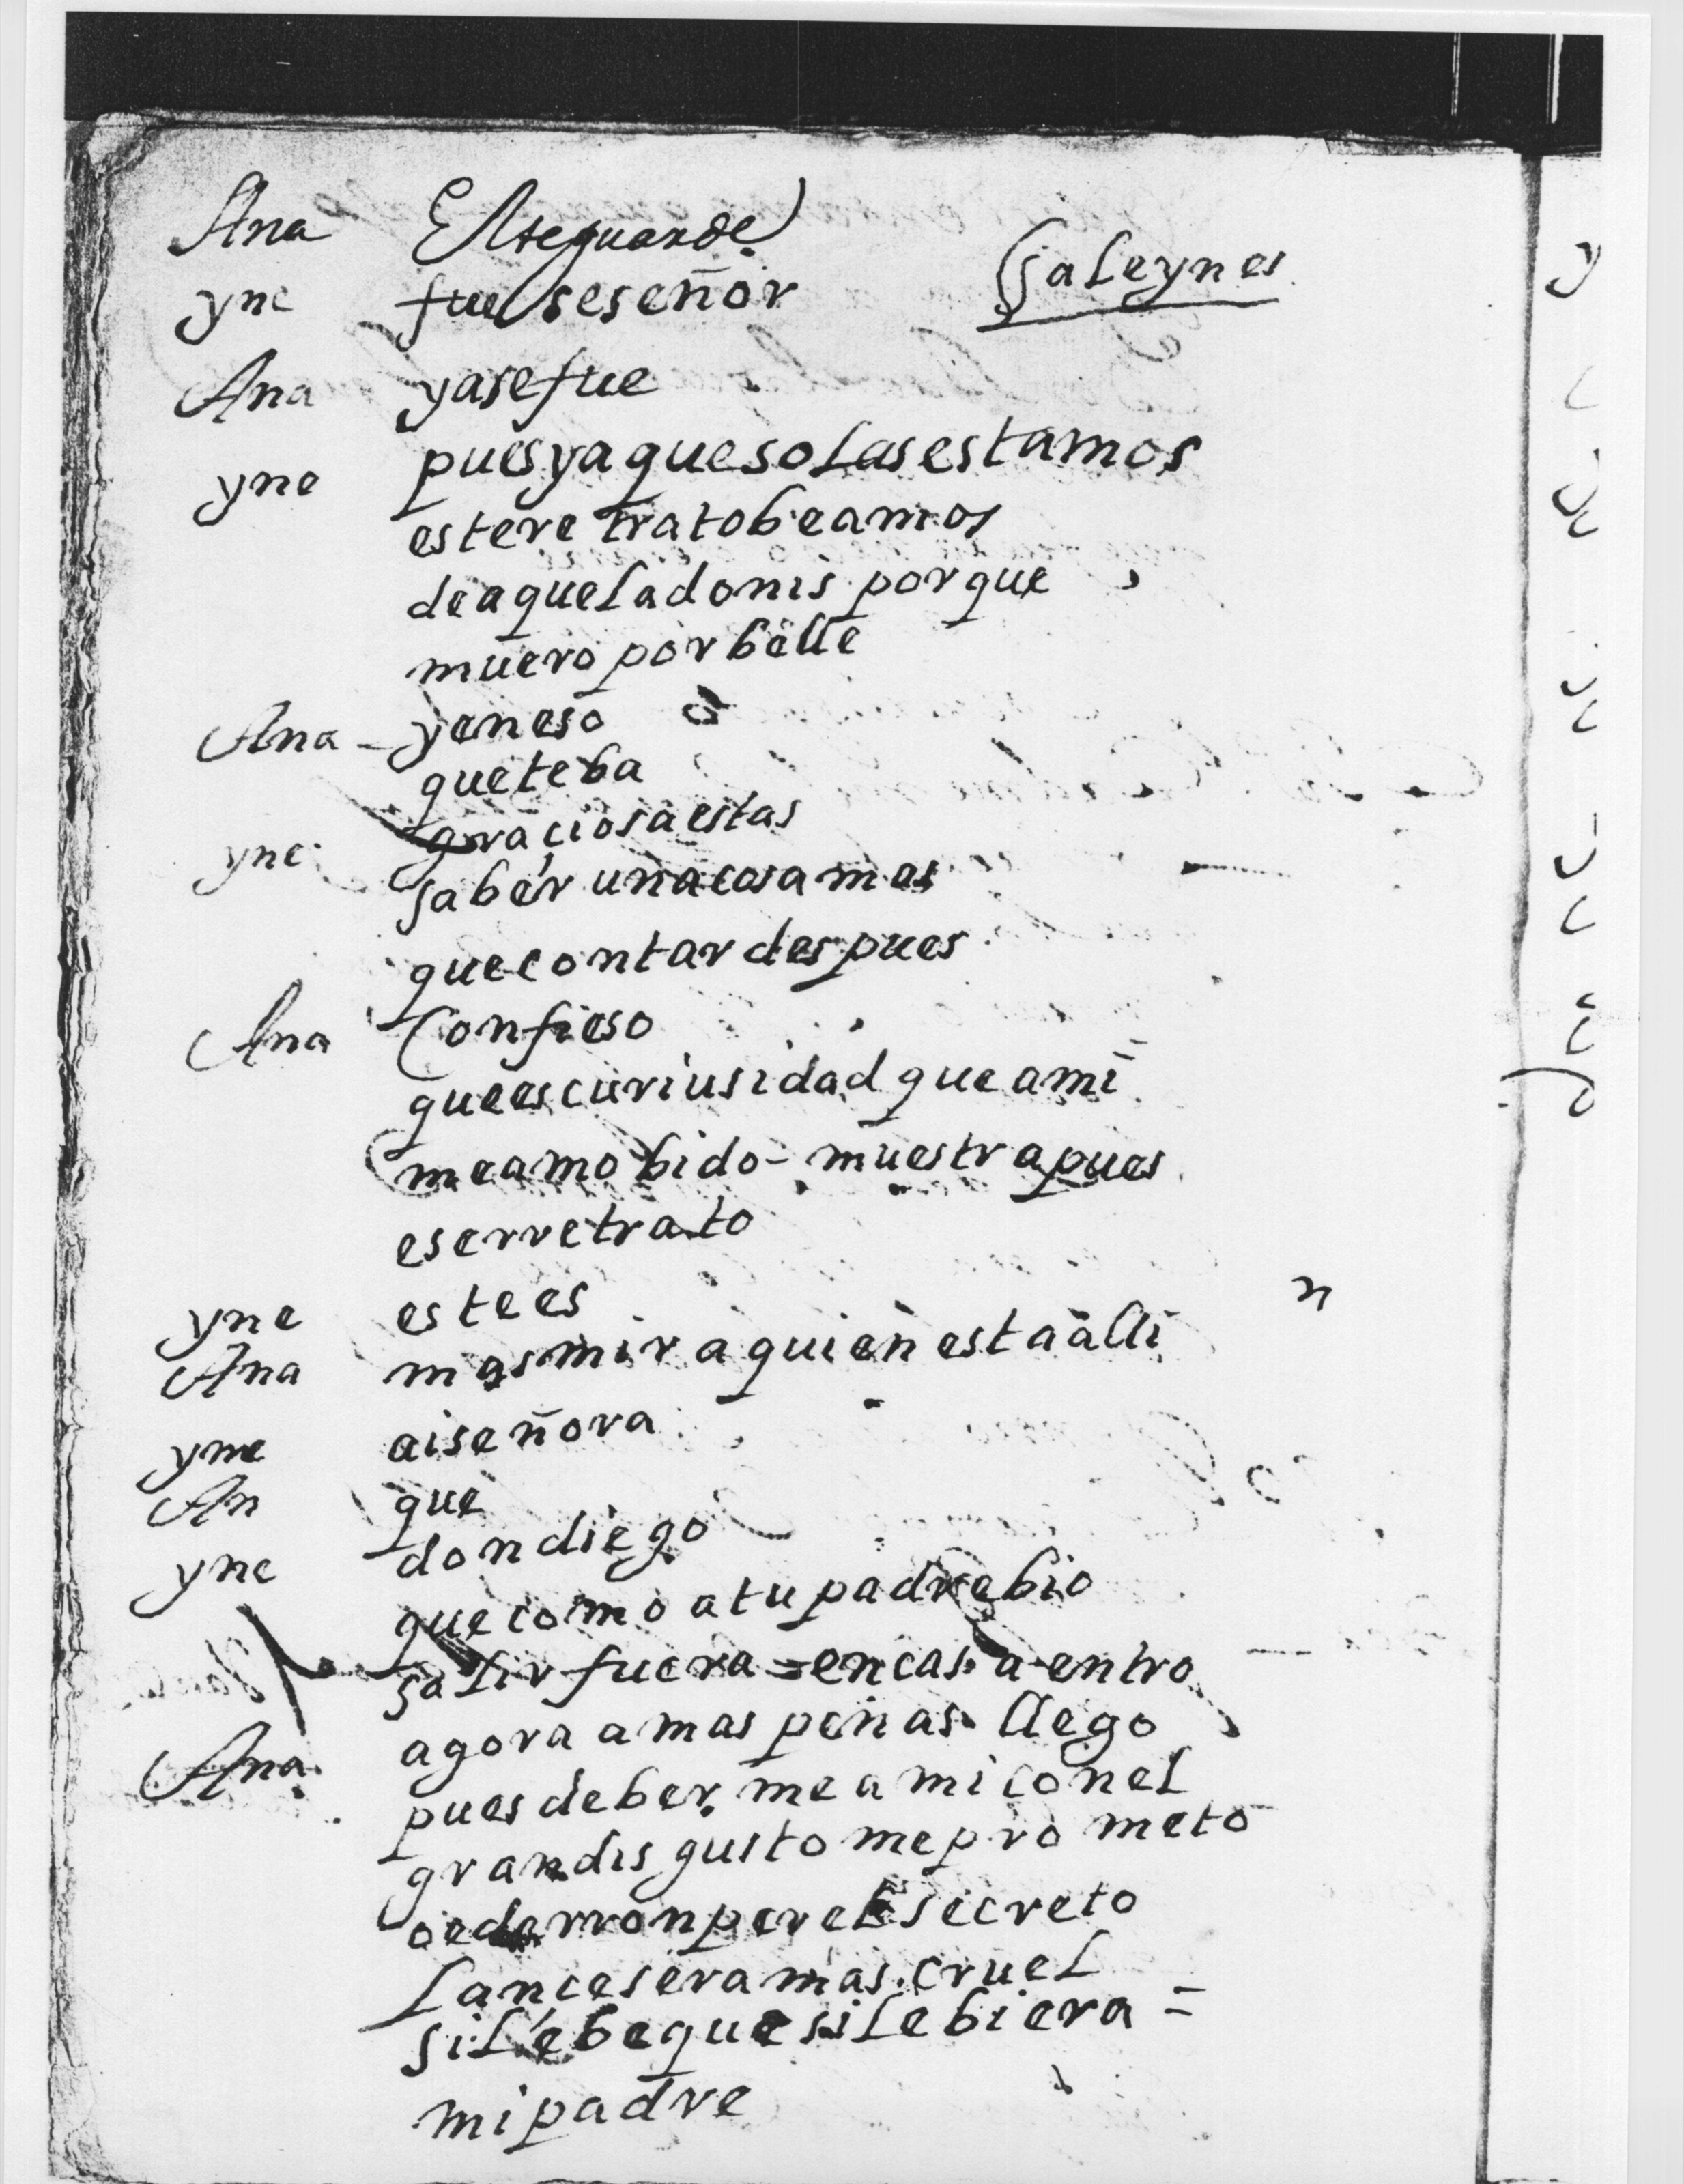 Ana El te guarde
Sale ynes
yne fuese señor
Ana ya se fue
yne pues ya que solas estamos
este retrato beamos
de aquel adonis por que
muero por belle
Ana - y en eso
que te ba
yne graciosa estas
saber una cosa mas
que contar despues
Ana Confieso
que es curiusidad que a mi
me a mobido - muestra pues
ese rretrato
yne este es
Ana mas mira quien esta alli
yne ai señora
An que
yne don diego
que como a tu padre bio
salir fuera = en casa entro
Ana agora a mas penas llego
pues de berme a mi con el
gran disgusto me prometo
secreto
lance sera mas cruel
si le be que si le biera =
mi padre